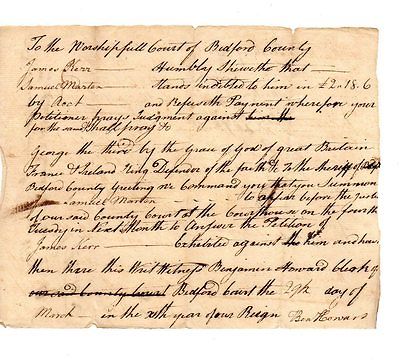 To the Worshipfull Court of Bedford County
James Kerr — Humbly Sheweth that —
Samuel Marten — Stands indebted to him in £2 " 18.6
by Acct — and Refuseth Payment wherefore your
Petitioner prays Judgment against
for the same & shall pray &c
George the third by the Grace of God of great Brittain
France & Ireland King Defender of the faith &c To the Sheriff of
Bedford County Greeting We Command you that you Summon
Samuel Marten — to appear before the Justices
of our said County Court at the Courthouse on the fourth
Tuesday in Next Month to Answer the Petition of
James Kerr — Exhibited against him and have
then there this Writ Witness Benjamin Howard Clerk of
our said County Court Bedford Court the 29th day of
March — in the Xth year of our Reign Ben Howard